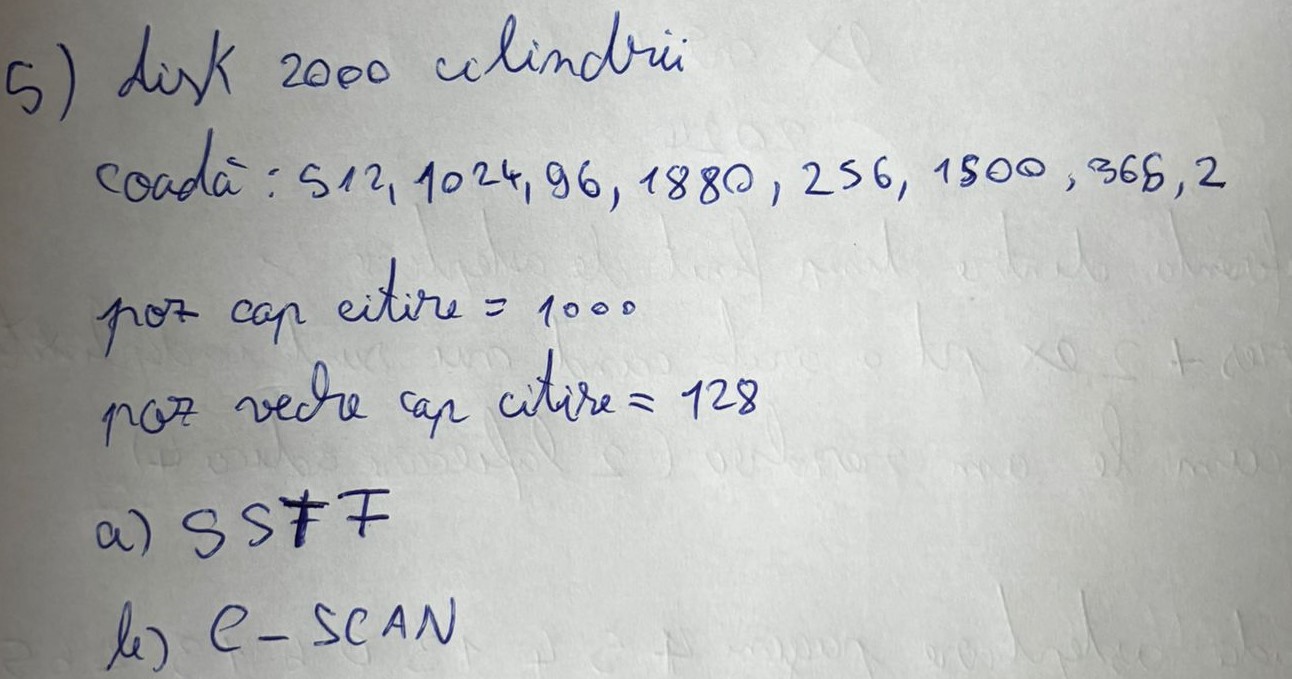 5) disk 2000 cilindrii
coadă: 512, 1024, 96, 1880, 256, 1500, 366, 2
poz cap citire = 1000
poz veche cap citire = 128
a) SSTF
b) C-SCAN